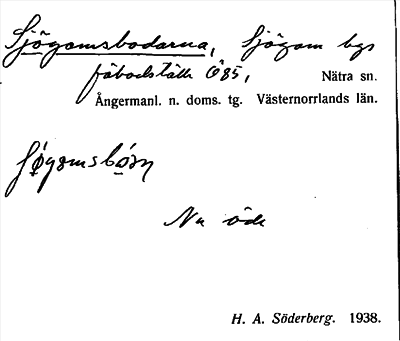 Sjögomsbodarna, Sjögom bys
fäbodställe Ö 85, Nätra sn.
Ångermanl. n. doms. tg. Västernorrlands län.
Nu öde
H. A. Söderberg. 1938.